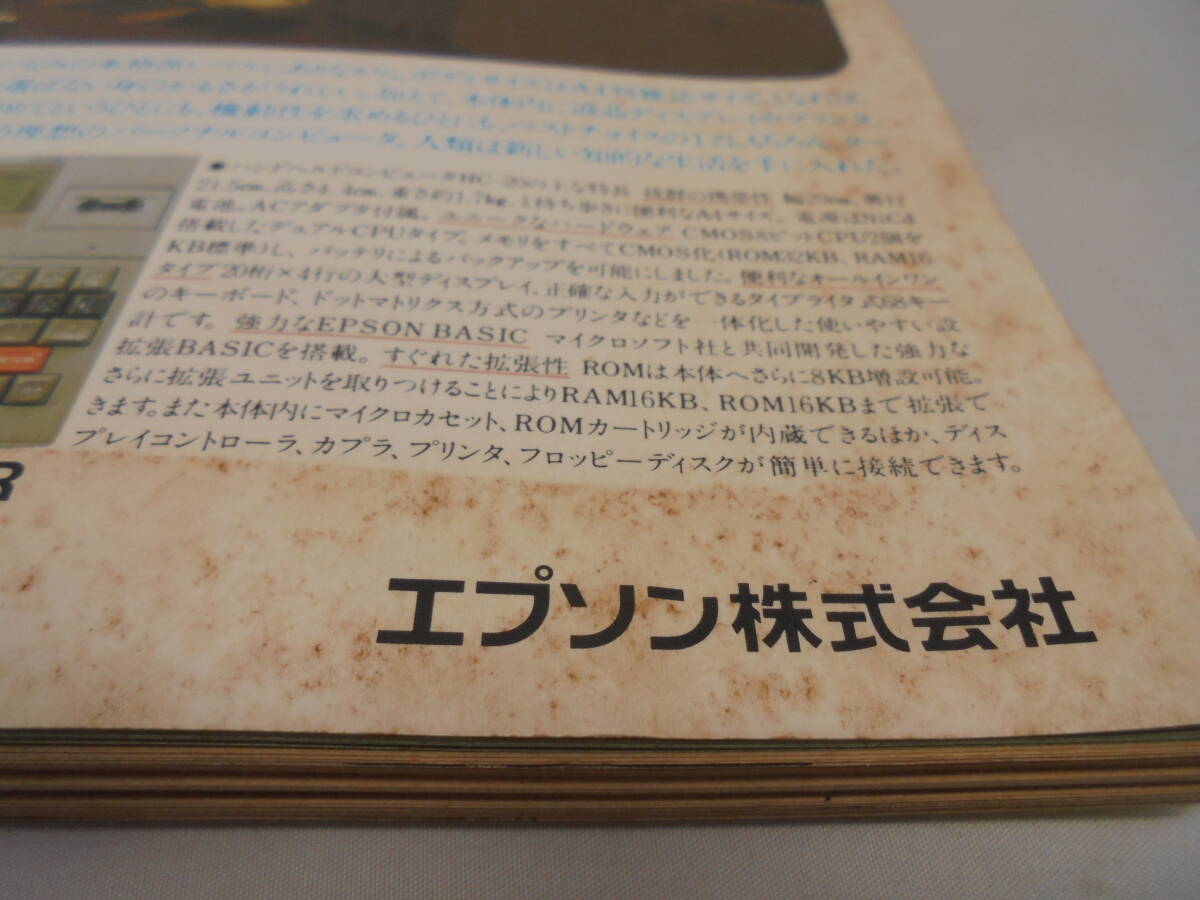 本格派パーソナルコンピュータ、人類は新しい知的な生活を手に入れた。
●ハンドヘルドコンピュータHC-20の主な特長 抜群の携帯性 幅29cm、奥行
21.5cm、高さ4.4cm、重さ約1.7kg、と持ち歩きに便利なA4サイズ。電源はNiCd
電池。ACアダプタ付属。ユニークなハードウェア CMOS8ビットCPU2個を
搭載したデュアルCPUタイプ。メモリをすべてCMOS化(ROM32KB、RAM16
KB標準)し、バッテリによるバックアップを可能にしました。便利なオールインワン
タイプ 20桁×4行の大型ディスプレイ、正確な入力ができるタイプライタ式68キー
のキーボード、ドットマトリクス方式のプリンタなどを一体化した使いやすい設
計です。 強力なEPSON BASIC マイクロソフト社と共同開発した強力な
拡張BASICを搭載。 すぐれた拡張性 ROMは本体へさらに8KB増設可能。
さらに拡張ユニットを取りつけることによりRAM16KB、ROM16KBまで拡張で
きます。また本体内にマイクロカセット、ROMカートリッジが内蔵できるほか、ディス
プレイコントローラ、カプラ、プリンタ、フロッピーディスクが簡単に接続できます。
R
エプソン株式会社